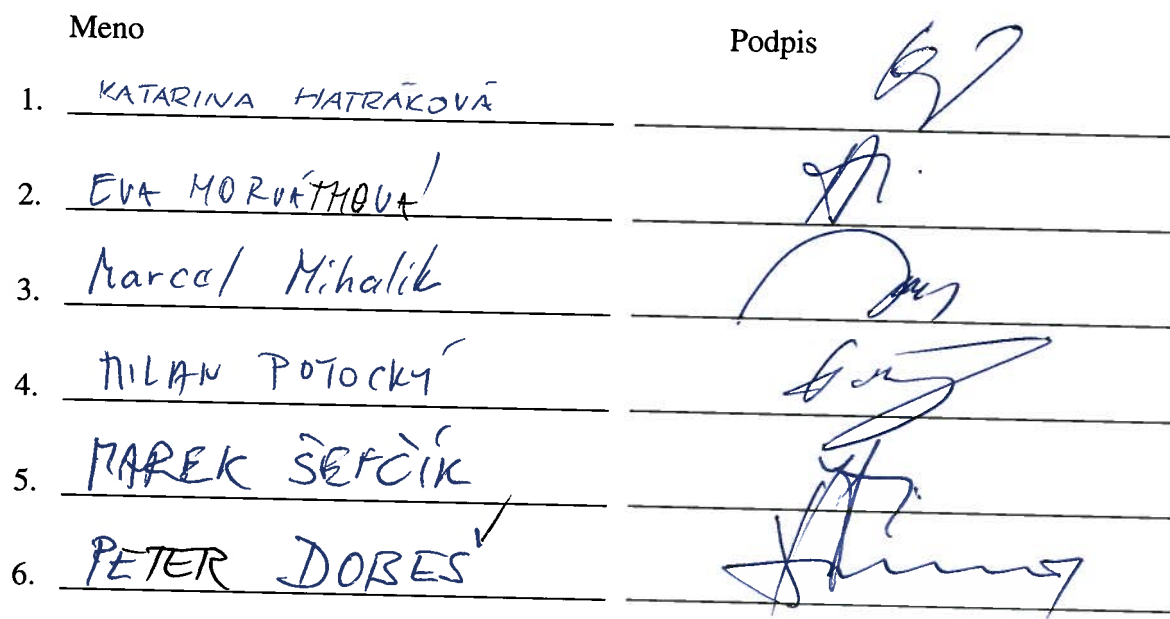 Meno Podpis
1. KATARINA HATRÁKOVÁ
2. EVA HORVÁTHOVÁ
3. Marcel Mihalik
4. MILAN POTOCKÝ
5. MAREK ŠEFČÍK
6. PETER DOBEŠ